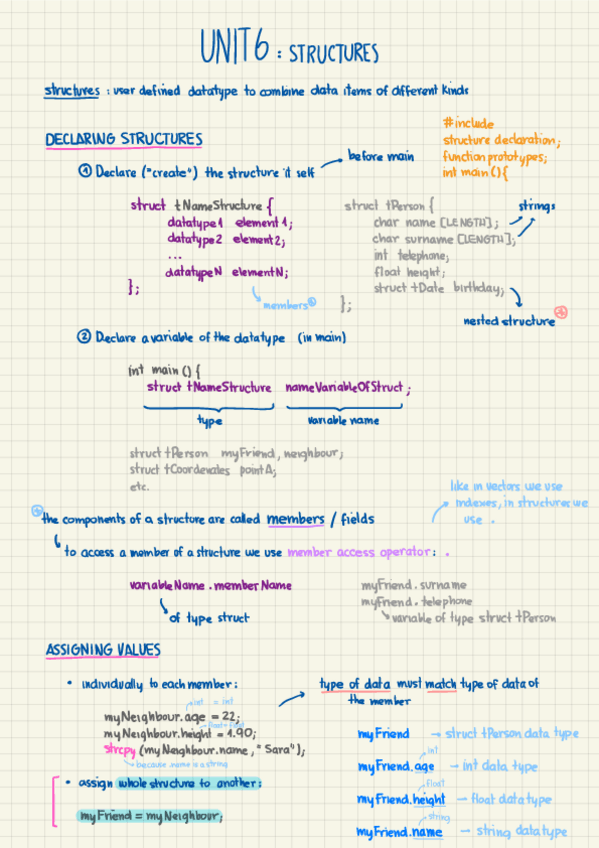 UNIT 6 : STRUCTURES
structures : user defined datatype to combine data items of different kinds
DECLARING STRUCTURES
① Declare ("create") the structure it self
before main
#include
structure declaration;
function prototypes;
int main () {
struct tNameStructure {
datatype1 element1;
datatype2 element2;
...
datatypeN elementN;
};
members
struct tPerson {
char name [LENGTH];
char surname [LENGTH];
int telephone;
float height;
struct tDate birthday;
};
strings
nested structure
② Declare a variable of the datatype (in main)
int main () {
struct tNameStructure nameVariableOfStruct;
type
variable name
struct tPerson myFriend, neighbour;
struct tCoordenates pointA;
etc.
the components of a structure are called members / fields
like in vectors we use
indexes, in structures we
use .
to access a member of a structure we use member access operator: .
variableName.memberName
of type struct
myFriend.surname
myFriend.telephone
variable of type struct tPerson
ASSIGNING VALUES
• individually to each member:
int = int
myNeighbour.age = 22;
float = float
myNeighbour.height = 1.90;
strcpy (myNeighbour.name, "Sara");
because name is a string
• assign whole structure to another:
myFriend = myNeighbour;
type of data must match type of data of
the member
myFriend → struct tPerson data type
int
myFriend.age → int data type
float
myFriend.height → float data type
string
myFriend.name → string data type